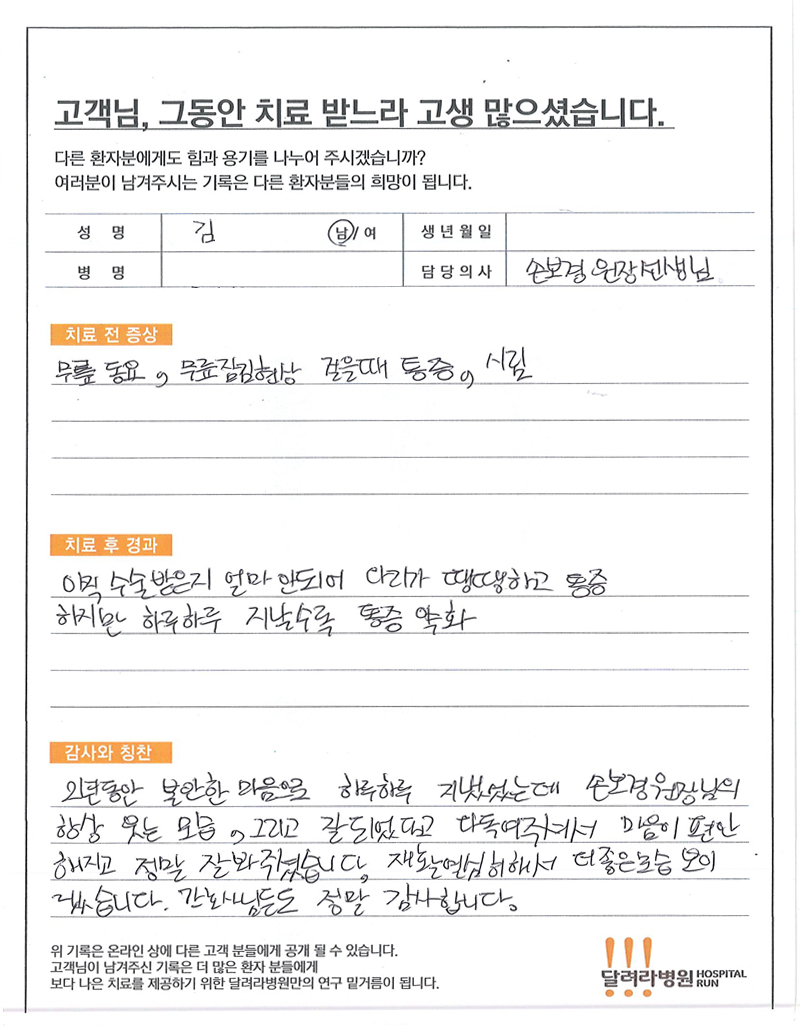 고객님, 그동안 치료 받느라 고생 많으셨습니다.
다른 환자분에게도 힘과 용기를 나누어 주시겠습니까?
여러분이 남겨주시는 기록은 다른 환자분들의 희망이 됩니다.
성 명 김 남/여 생년월일
병 명 담당의사 손보경 원장선생님
치료 전 증상
무릎 동요, 무릎잠김현상 걸을때 통증, 시림
치료 후 경과
아직 수술받은지 얼마 안되어 다리가 땡땡하고 통증
하지만 하루하루 지날수록 통증 약화
감사와 칭찬
2년동안 불안한 마음으로 하루하루 지냈었는데 손보경원장님의
항상 웃는 모습, 그리고 잘되었다고 다독여주셔서 마음이 편안
해지고 정말 잘봐주셨습니다, 재활열심히해서 더좋은모습 보이
겠습니다. 간호사님들도 정말 감사합니다.
위 기록은 온라인 상에 다른 고객 분들에게 공개 될 수 있습니다.
고객님이 남겨주신 기록은 더 많은 환자 분들에게
보다 나은 치료를 제공하기 위한 달려라병원만의 연구 밑거름이 됩니다.
달려라병원 HOSPITAL RUN